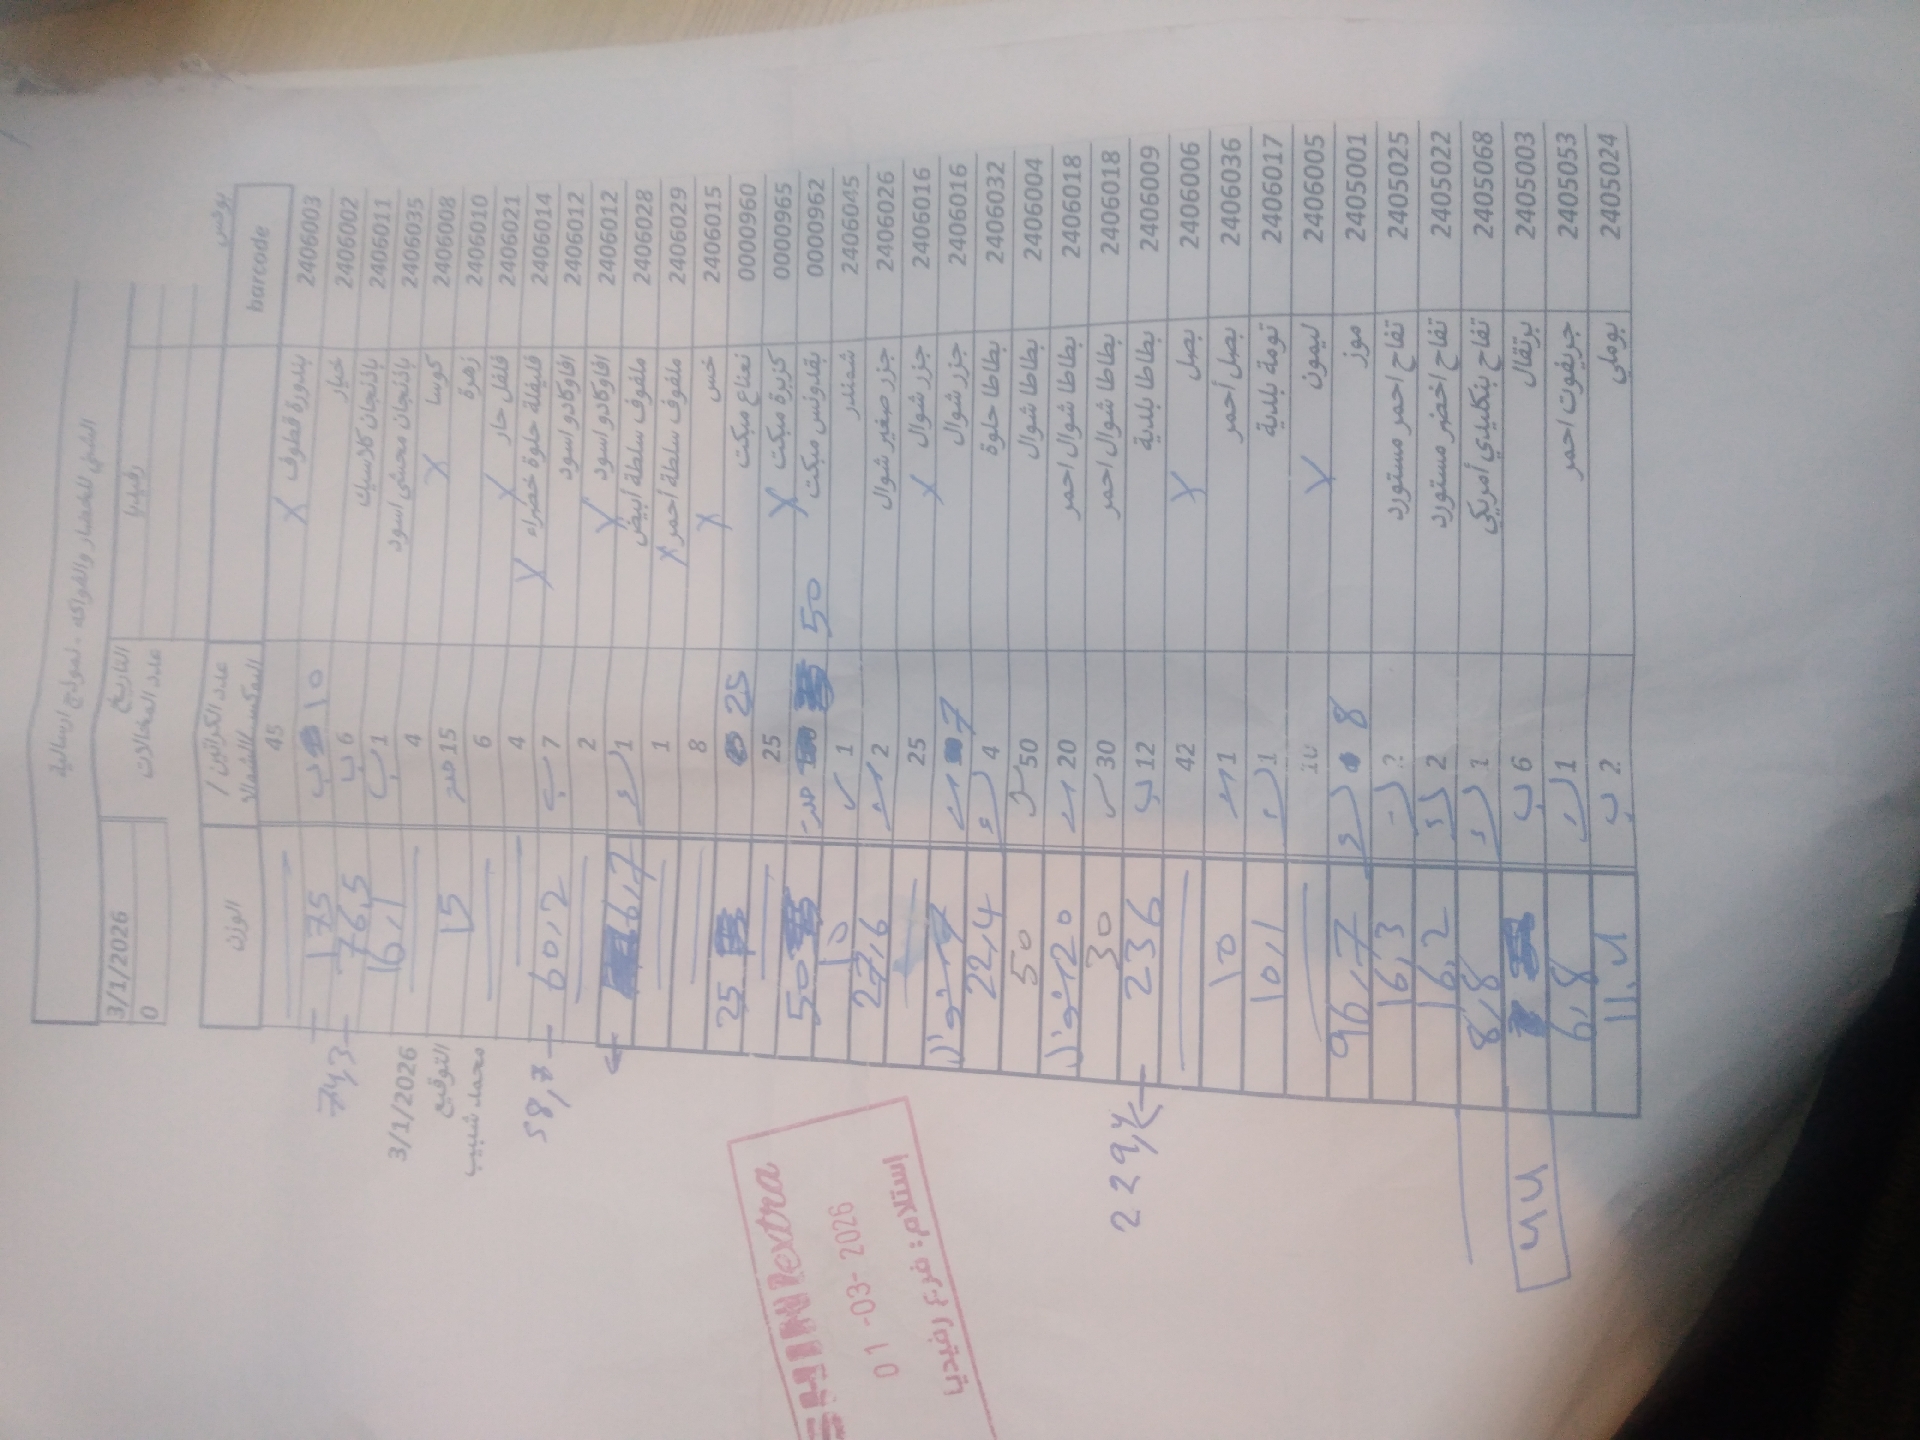 الشني للخضار والفواكه - لمولي ارسالية
3/1/2026 التاريخ رفيديا
0 عدد المحالات
بونس
barcode عدد الكراتين / المكس / الشمالا الوزن
2406003 بندورة قطوف X 45
2406002 خيار ب 10 175
2406011 باذنجان كلاسيك ب 6 76,5 74,3
2406035 باذنجان محشي اسود ب 1 16,1
2406008 كوسا X 4
2406010 زهرة 15 15
2406021 فلفل حار X 6
2406014 فليفلة حلوة خضراء X 4
2406012 افاوكادو اسود ب 7 60,2 58,7
2406012 افاوكادو اسود X 2
2406028 ملفوف سلطة أبيض 1 16,7
2406029 ملفوف سلطة أحمر X 1
2406015 خس X 8
0000960 نعناع مبكت 25 25
0000965 كزبرة مبكت X 25
0000962 بقدونس مبكت 50 50
2406045 شمندر 1 10
2406026 جزر صغير شوال 2 27,6
2406016 جزر شوال X 25
2406016 جزر شوال 7 7 شوال
2406032 بطاطا حلوة 4 22,4
2406004 بطاطا شوال 50 50
2406018 بطاطا شوال احمر 20 20 شوال
2406018 بطاطا شوال احمر 30 30
2406009 بطاطا بلدية ب 12 236 229,4
2406006 بصل X 42
2406036 بصل أحمر 1 10
2406017 تومة بلدية 1 10,1
2406005 ليمون X 10
2405001 موز 8 96,7
2405025 تفاح احمر مستورد 16,3
2405022 تفاح اخضر مستورد 2 16,2
2405068 تفاح بنكليدي أمريكي 8,8
2405003 برتقال ب 6
2405053 جريفوت احمر 1 6,8
2405024 بوملي ب 2
3/1/2026
التوقيع
محمد شبيب
extra
01 -03- 2026
إستلام: فرع رفيديا